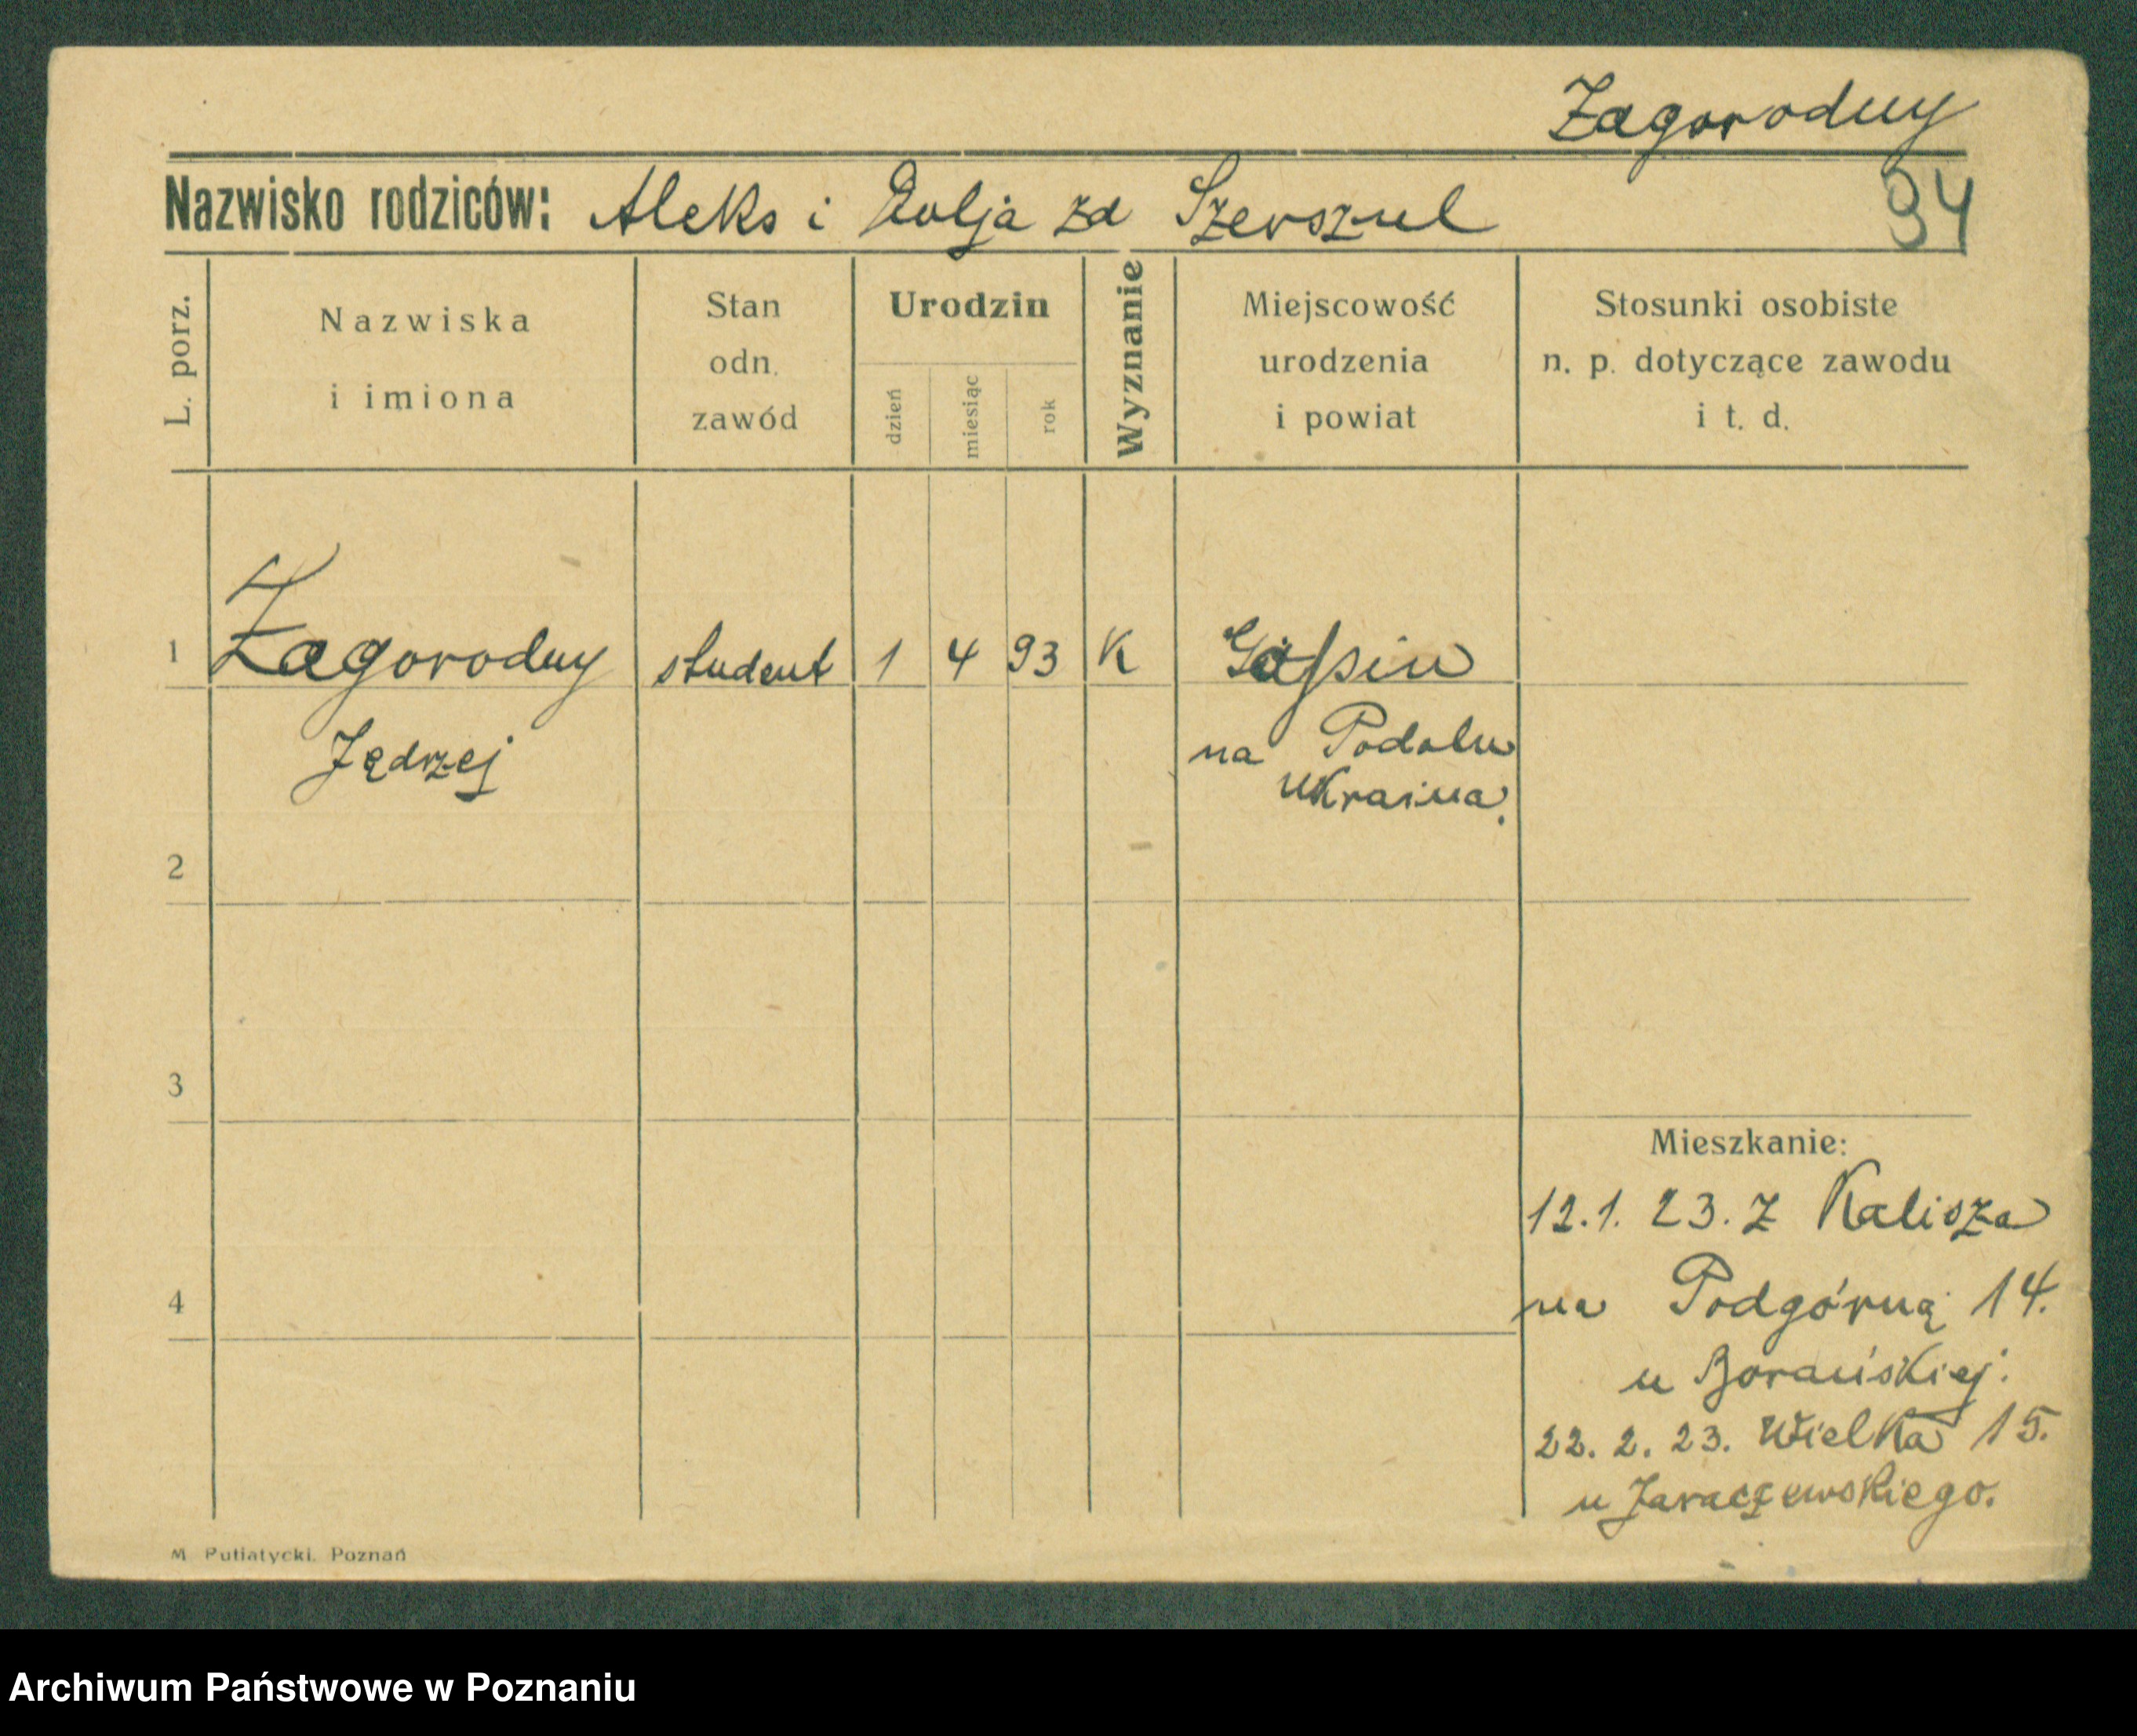 Zagorodny
Nazwisko rodziców: Aleks i Julja zd Szerszul
94
L. porz.
Nazwiska
i imiona
Stan
odn.
zawód
Urodzin
dzień
miesiąc
rok
Wyznanie
Miejscowość
urodzenia
i powiat
Stosunki osobiste
n. p. dotyczące zawodu
i t. d.
1 Zagorodny student 1 4 93 K
Jędrzej
na Podolu
Ukraina.
2
3
4
Mieszkanie:
12.1. 23. z Kalisza
na Podgórną 14.
u Borańskiej.
22. 2. 23. Wielka 15.
u Jaraczewskiego.
M Putiatycki. Poznań
Archiwum Państwowe w Poznaniu